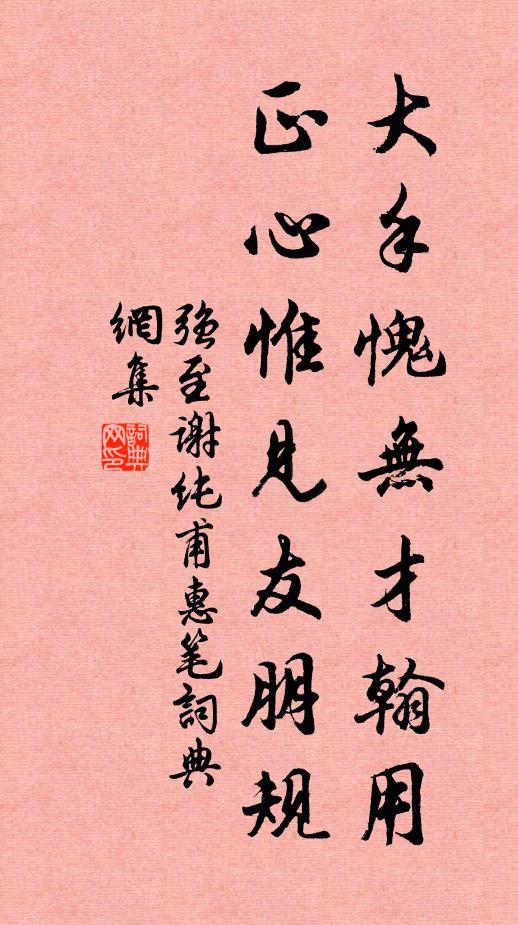 大手愧無才翰用
正心惟見友朋規
強至謝純甫惠笔詞典
網集
詞典網印